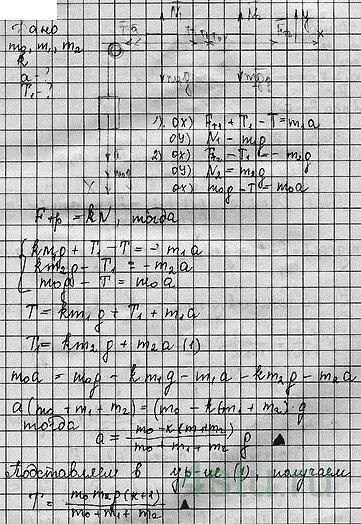 Дано
m₀, m₁, m₂
k
a - ?
T₁ - ?
N₁ N₂ y
Fтр x
m₁g m₂g
m₀g
1). ОХ) Fтр1 + T₁ - T = m₁a
ОУ) N₁ - m₁g
2) ОХ) Fтр2 - T₁ = - m₂g
ОУ) N₂ = m₂g
ОХ) m₀g - T = m₀a
Fтр = kN, тогда
km₁g + T₁ - T = - m₁a
km₂g - T₁ = - m₂a
m₀g - T = m₀a
T = km₁g + T₁ + m₁a
T₁ = km₂g + m₂a (1)
m₀a = m₀g - km₁g - m₁a - km₂g - m₂a
a(m₀ + m₁ + m₂) = (m₀ - k(m₁ + m₂)·g
тогда
a = m₀ - k(m₁ + m₂) / m₀ + m₁ + m₂ g ▲
Подставляем в ур-ие (1), получаем
T = m₀m₂g(k+1) / m₀ + m₁ + m₂ ▲